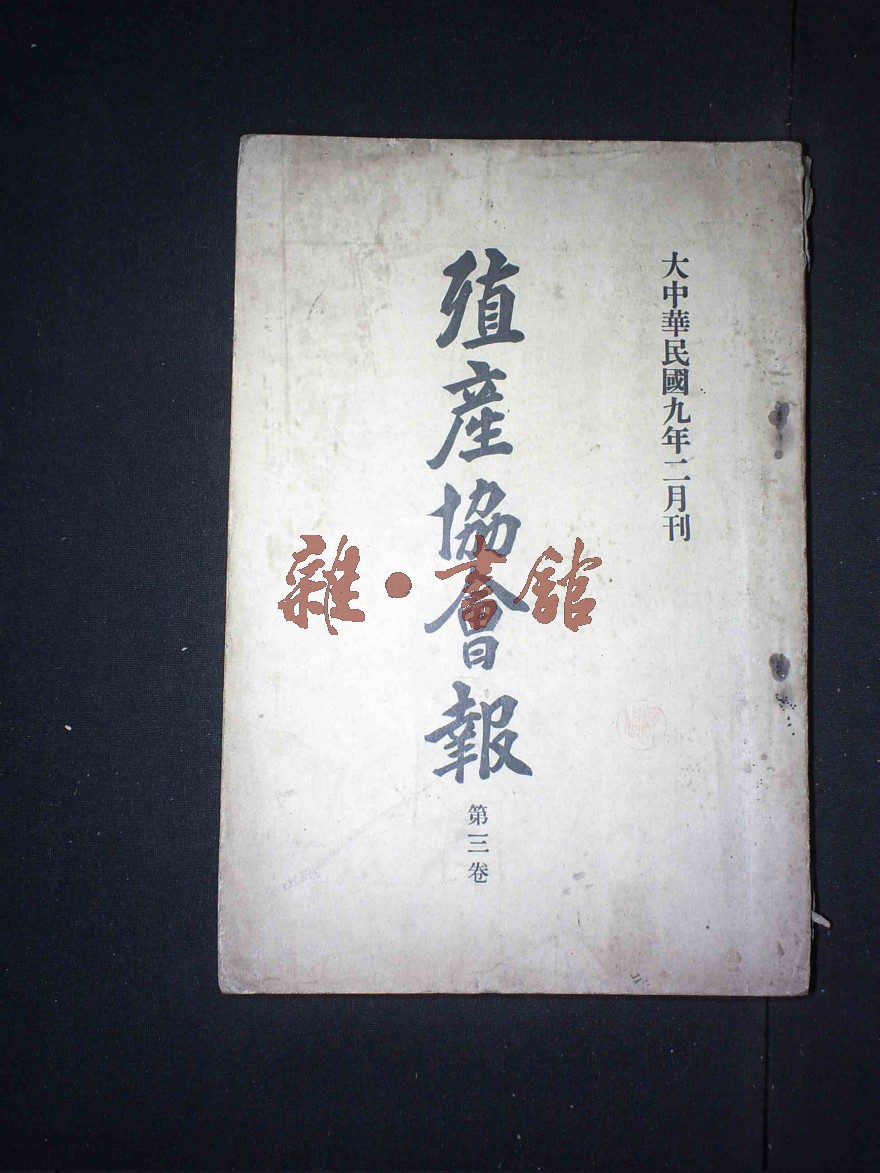 大中華民國九年二月刊
殖產協會報
第三卷
雜·書館